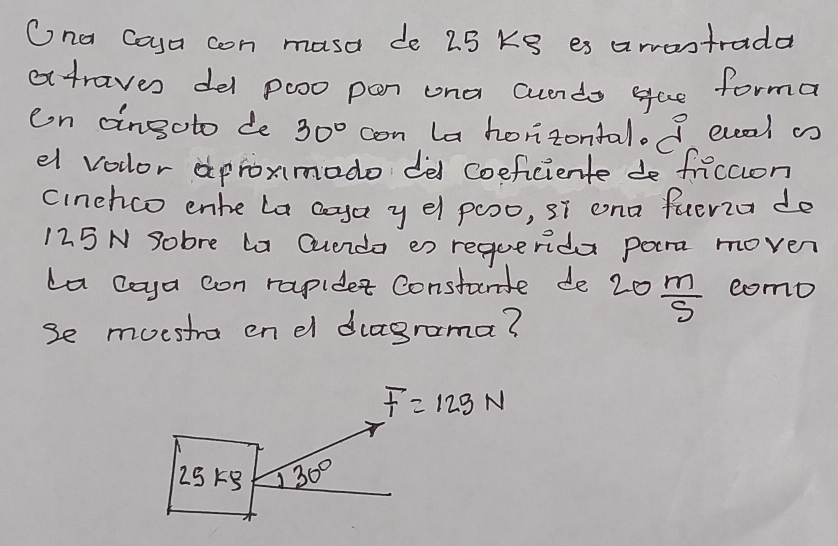 Una caja con masa de 25 Kg es arrastrada
a traves del piso por una cuerda que forma
un ángulo de 30° con la horizontal. ¿ cual es
el valor aproximado del coeficiente de friccion
cinetico entre la caja y el piso, si una fuerza de
125 N sobre la cuerda es requerida para mover
la caja con rapidez constante de 20 m/s como
se muestra en el diagrama?
F = 125 N
25 Kg
30°